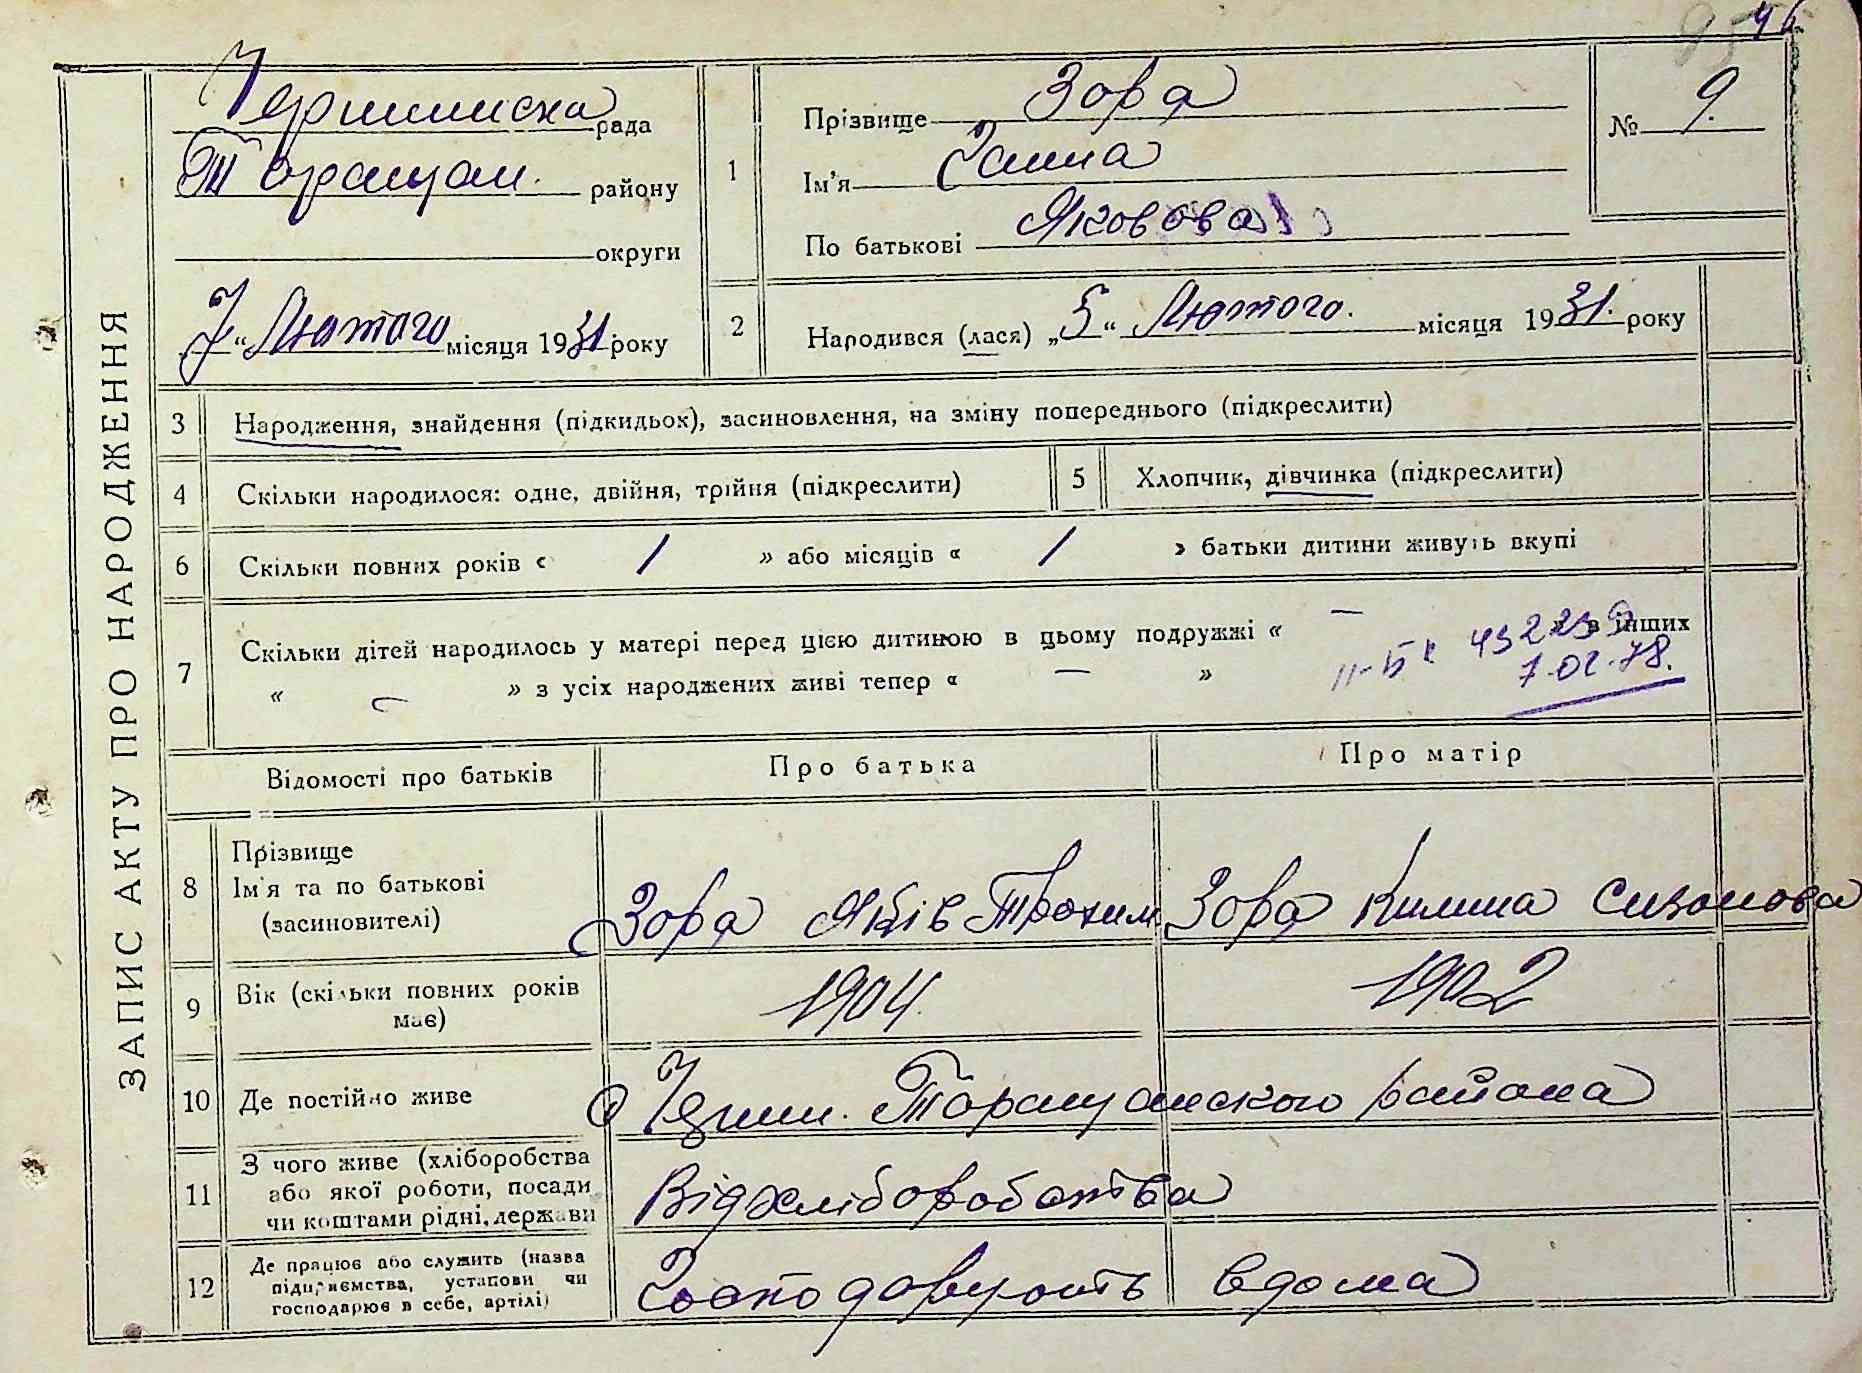 46
ЗАПИС АКТУ ПРО НАРОДЖЕННЯ
рада
Таращан. району
округи
„7“ Лютого місяця 1931 року
1
Прізвище Зоря
Ім'я Ганна
По батькові Яковова
№ 9.
2
Народився (лася) „5“ Лютого. місяця 1931. року
3 Народження, знайдення (підкидьох), засиновлення, на зміну попереднього (підкреслити)
4 Скільки народилося: одне, двійня, трійня (підкреслити)
5 Хлопчик, дівчинка (підкреслити)
6 Скільки повних років « / » або місяців « / » батьки дитини живуть вкупі
7 Скільки дітей народилось у матері перед цією дитиною в цьому подружжі « — » в інших
« — » з усіх народжених живі тепер « — »
7.02.78.
Відомості про батьків
Про батька
Про матір
8
Прізвище
Ім'я та по батькові
(засиновителі)
Зоря Яків Трохим
Зоря Килина Сизонова
9
Вік (скільки повних років
має)
1904
1902
10 Де постійно живе
Таращанського района
11
З чого живе (хліборобства
або якої роботи, посади
чи коштами рідні, держави
Від хліборобства
12
Де працює або служить (назва
підприємства, установи чи
господарює в себе, артілі)
Господарюють вдома